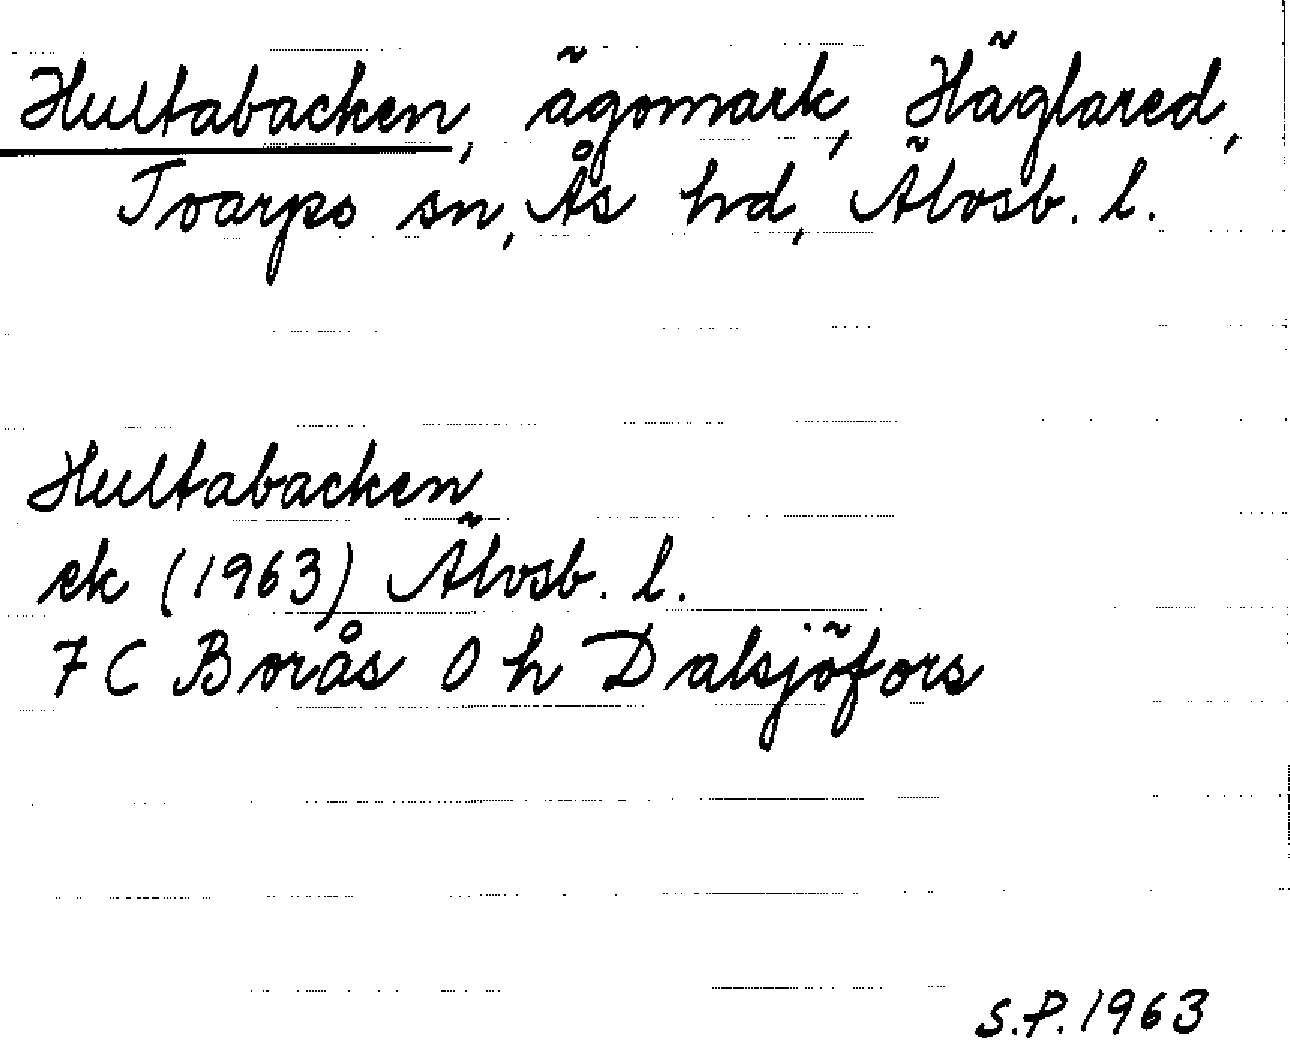 Hultabacken, ägomark, Häglared,
Tvarps sn, Ås hd, Älvsb. l.
Hultabacken
ek (1963) Älvsb. l.
7 C Borås 0 h Dalsjöfors
S.P. 1963